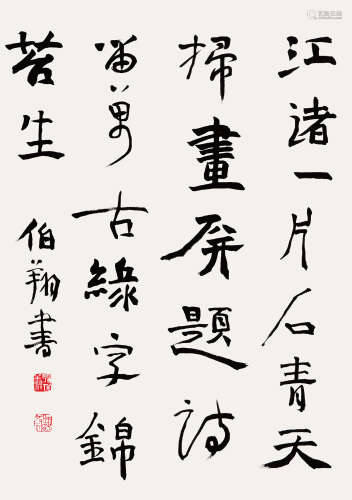 江诸一片石青天
掃畫屏題诗
留萬古綠字錦
苔生
伯翔書